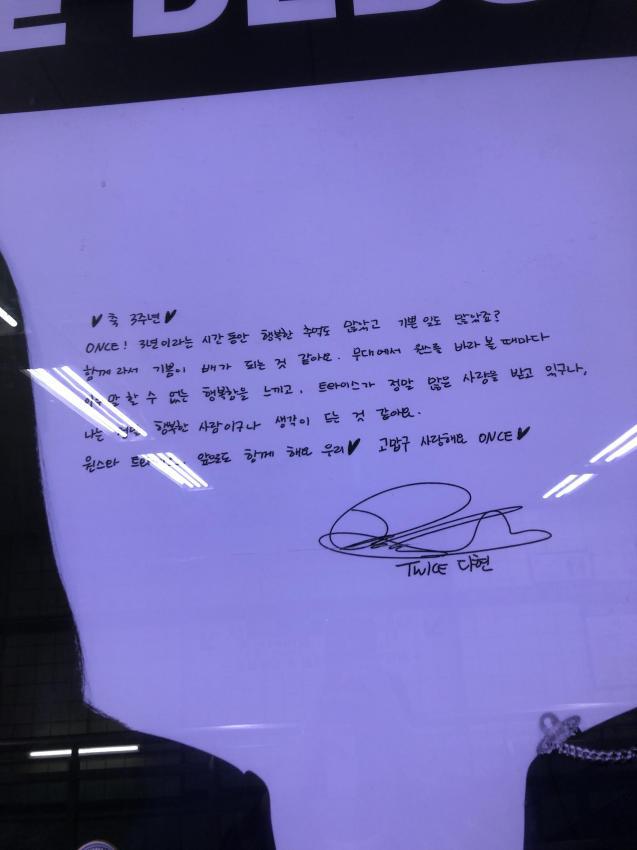 DEBU
♥ 축 3주년 ♥
ONCE! 3년이라는 시간동안 행복한 추억도 많았고 기쁜 일도 많았죠?
함께라서 기쁨이 배가 되는 것 같아요. 무대에서 원스를 바라볼 때마다
말 할 수 없는 행복함을 느끼고, 트와이스가 정말 많은 사랑을 받고 있구나,
나는 행복한 사람이구나 생각이 드는 것 같아요.
원스와 앞으로도 함께 해요 우리♥ 고맙구 사랑해요 ONCE♥
TWICE 다현